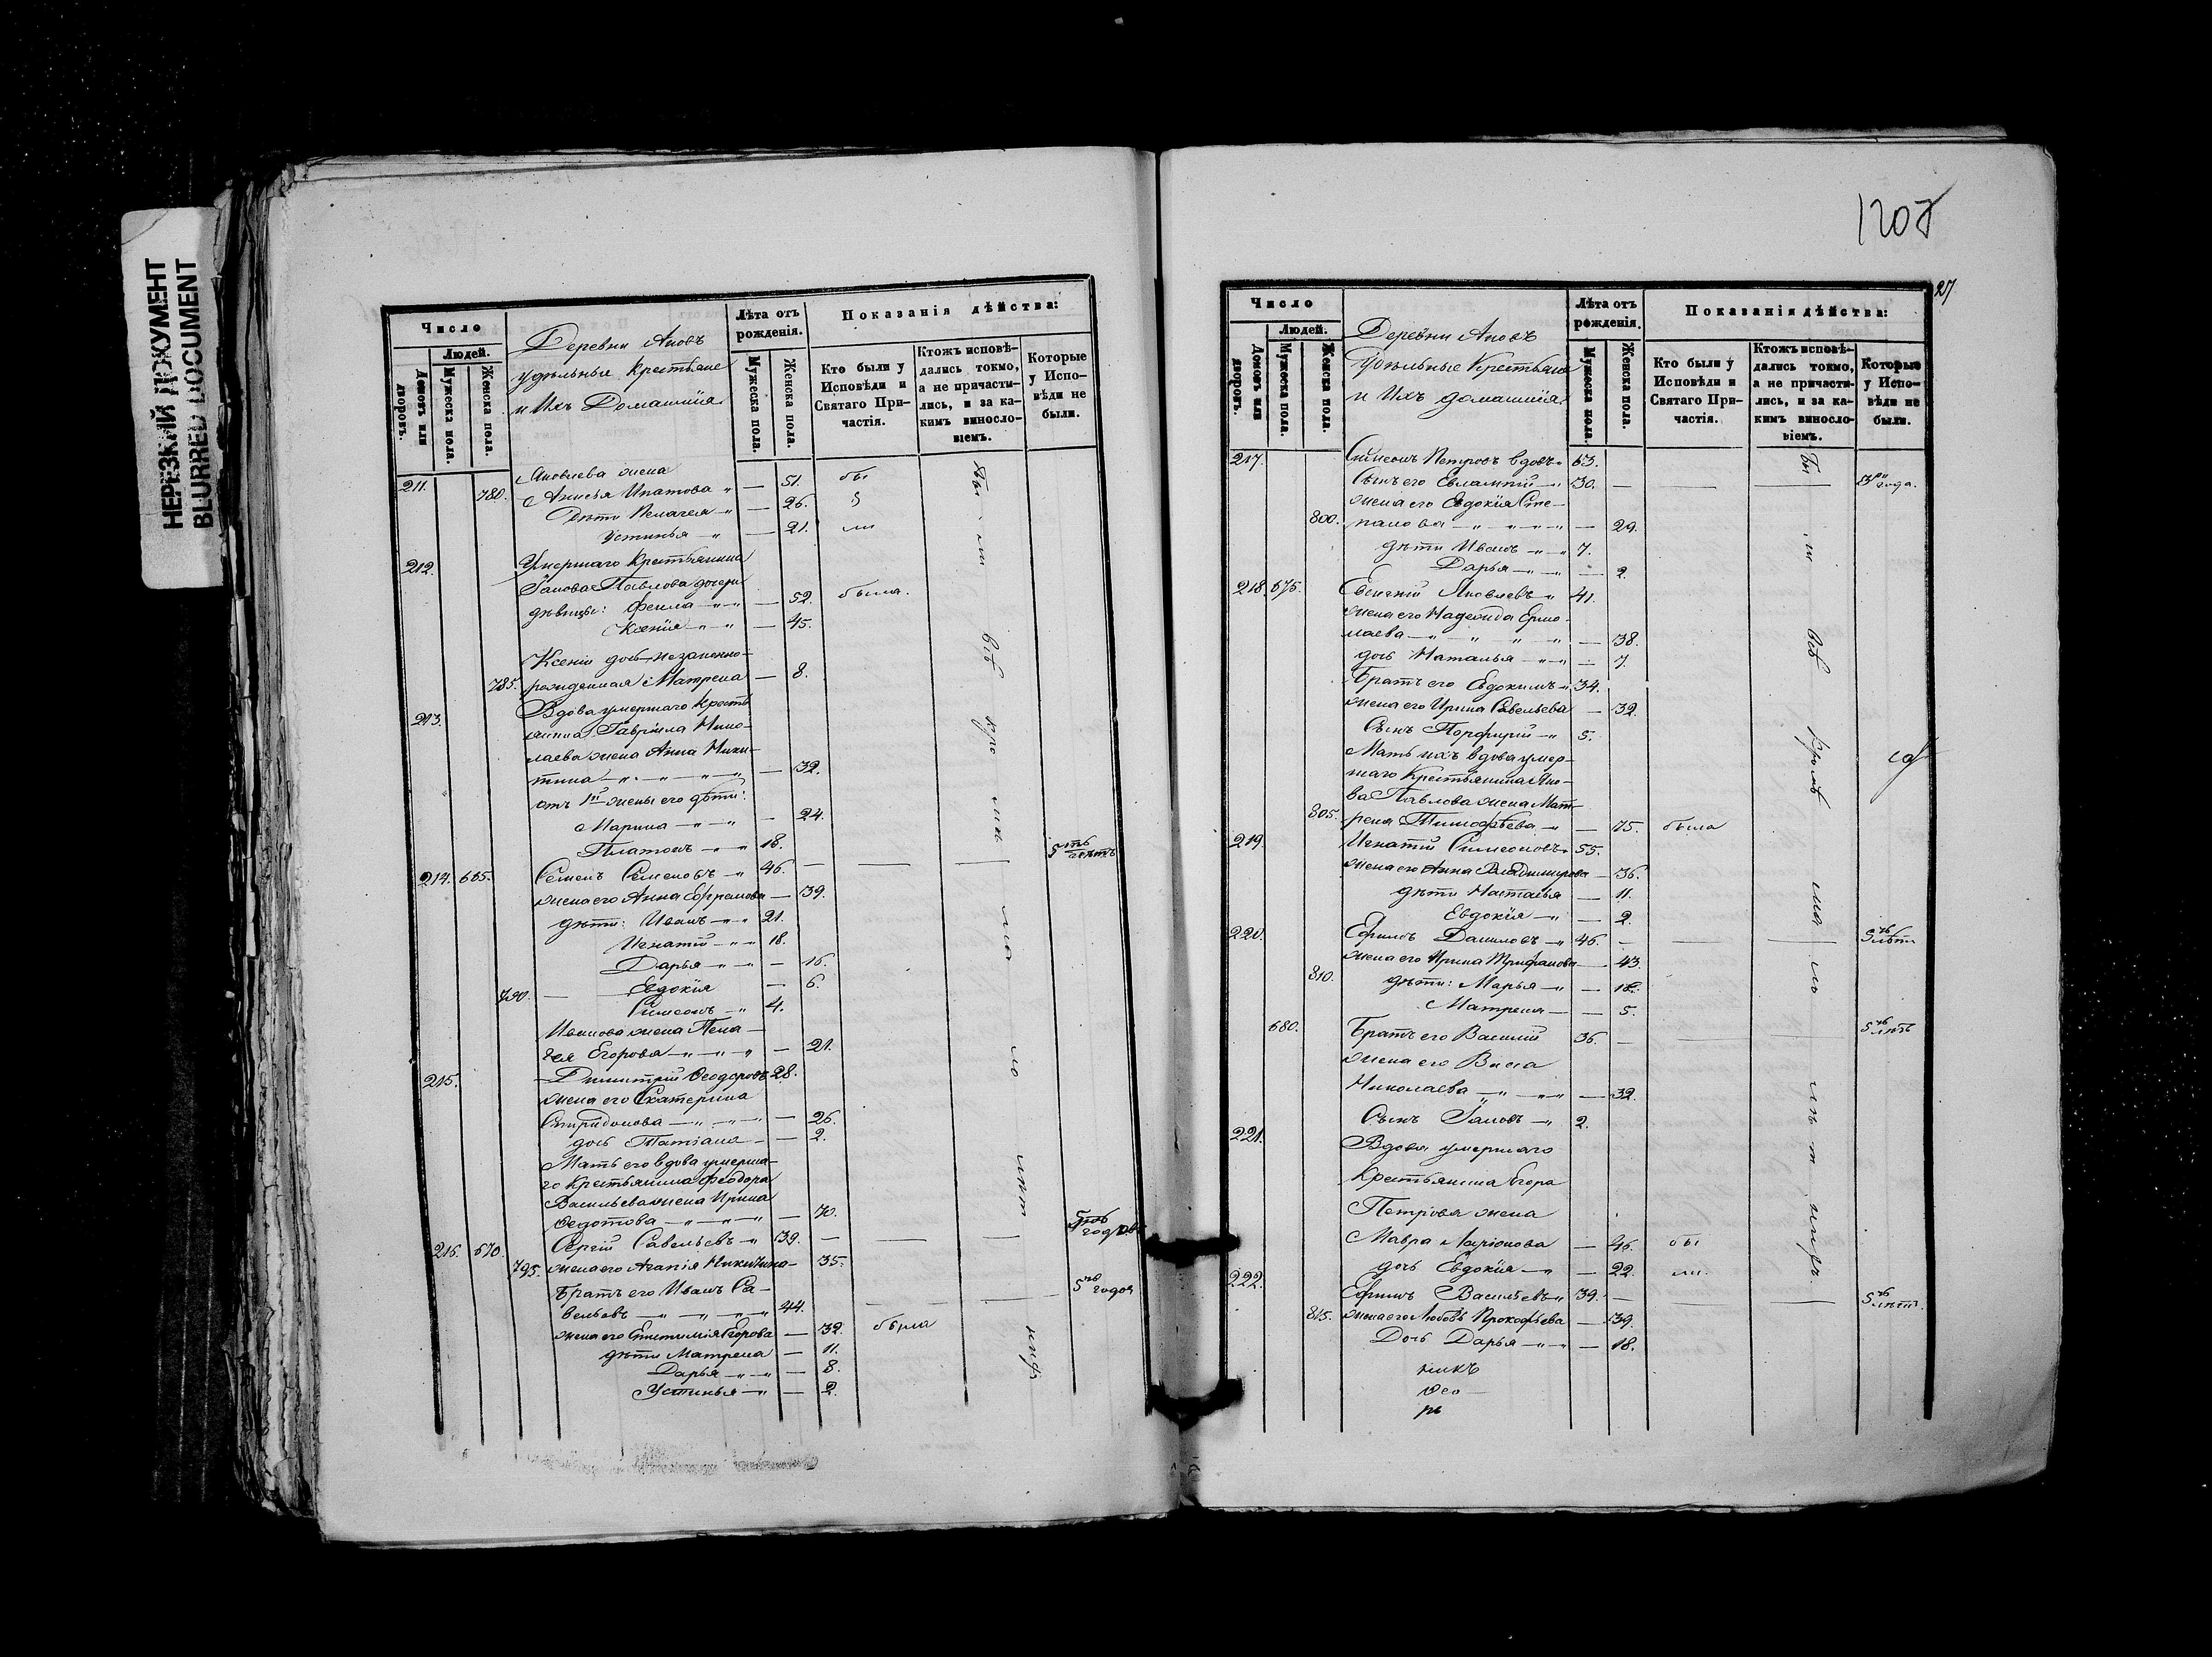 НЕРЕЗКИЙ ДОКУМЕНТ
BLURRED DOCUMENT
Число
Людей.
Домовъ или дворовъ.
Мужеска пола.
Женска пола.
Деревни
удѣльные крестьяне
и Ихъ Домашнія
Лѣта отъ рожденія.
Мужеска пола.
Женска пола.
Показанія дѣйства:
Кто были у Исповѣди и Святаго При-частія.
Ктожъ исповѣ-дались токмо, а не причасти-лись, и за ка-кимъ винословіемъ.
Которые у Испо-вѣди не были.
Яковлева жена
211. 780. Анисья Ипатова — 51. бы
Дѣти Пелагея — 26.
Устинья — 21. ли
212. Умершаго крестьянина
Іакова Павлова дочери
дѣвицы: Фекла — 52. была.
Ксенія — 45.
Ксеніи дочь незаконно-
785. рожденная Матрена — 8.
213. Вдова умершаго Кресть
янина Гавріила Нико-
лаева жена Анна Ники-
тина — 32.
отъ 1й жены его дѣти:
Марина — 24.
Платонъ — 18.
214. 665. Семенъ Семеновъ 46. —
жена его Анна Ефремова — 39.
дѣти: Иванъ 21.
Игнатій 18.
Дарья — 16.
790. Евдокія — 6.
Симеонъ 4.
Иванова жена Пела-
гея Егорова — 21.
215. Димитрій Ѳеодоровъ 28.
жена его Екатерина
Спиридонова — 26.
дочь Татіана — 2.
Мать его вдова умерша-
го Крестьянина Ѳеодора
Васильева жена Ирина
Ѳедотова — 70.
216. 670. Сергій Савельевъ 39. —
795. жена его Агапія Никитина — 35.
Братъ его Иванъ Са-
вельевъ 44. — 5 годов
жена его Епистимія Егорова — 32. была
дѣти Матрена — 11.
Дарья — 8.
Устинья — 2.
1208
27
Число
Людей.
Домовъ или дворовъ.
Мужеска пола.
Женска пола.
Деревни
Удѣльные Крестьяне
и Ихъ домашнія
Лѣта отъ рожденія.
Мужеска пола.
Женска пола.
Показанія дѣйства:
Кто были у Исповѣди и Святаго При-частія.
Ктожъ исповѣ-дались токмо, а не причасти-лись, и за ка-кимъ винословіемъ.
Которые у Испо-вѣди не были.
217. Симеонъ Петровъ вдовъ 63.
Сынъ его Евлампій 30. — 3 года.
жена его Евдокія Сте-
800. панова — 29.
дѣти Иванъ 7.
Дарья — 2.
218. 675. Евгений Яковлевъ 41.
жена его Надежда Ермо-
лаева — 38.
дочь Наталья — 7.
Братъ его Евдокимъ 34.
жена его Ирина Савельева — 32.
Сынъ Порфирій 5.
Мать ихъ вдова умер-
шаго Крестьянина Яко-
ва Павлова жена Мат-
805. рена Тимофѣева — 75. была
219. Игнатій Симеоновъ 55.
жена его Анна Владимирова — 36.
дѣти Наталья — 11.
Евдокія — 2.
220. Ефимъ Даниловъ 46. — 5 лѣт
жена его Ирина Трифанова — 43.
810. дѣти: Марья — 18.
Матрена — 5.
680. Братъ его Василій 36. — 5 лѣтъ
жена его Васса
Николаева — 32.
Сынъ Іаковъ 2.
221. Вдова умершаго
Крестьянина Егора
Петрова жена
Мавра Ларіонова — 46. бы
дочь Евдокія — 22. ли.
222. Ефимъ Васильевъ 39. — 5 лѣт.
815. жена его Любовь Прокофьева — 39.
Дочь Дарья — 18.